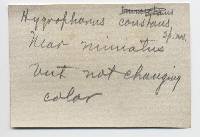 Hygrophorus constans,
sp. nov.
Near miniatus
but not changing
color